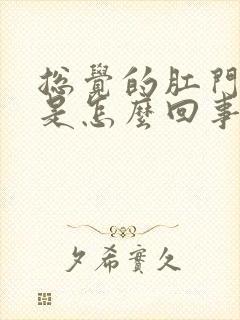 總覺的肛門
是怎麼回事
夕希實久